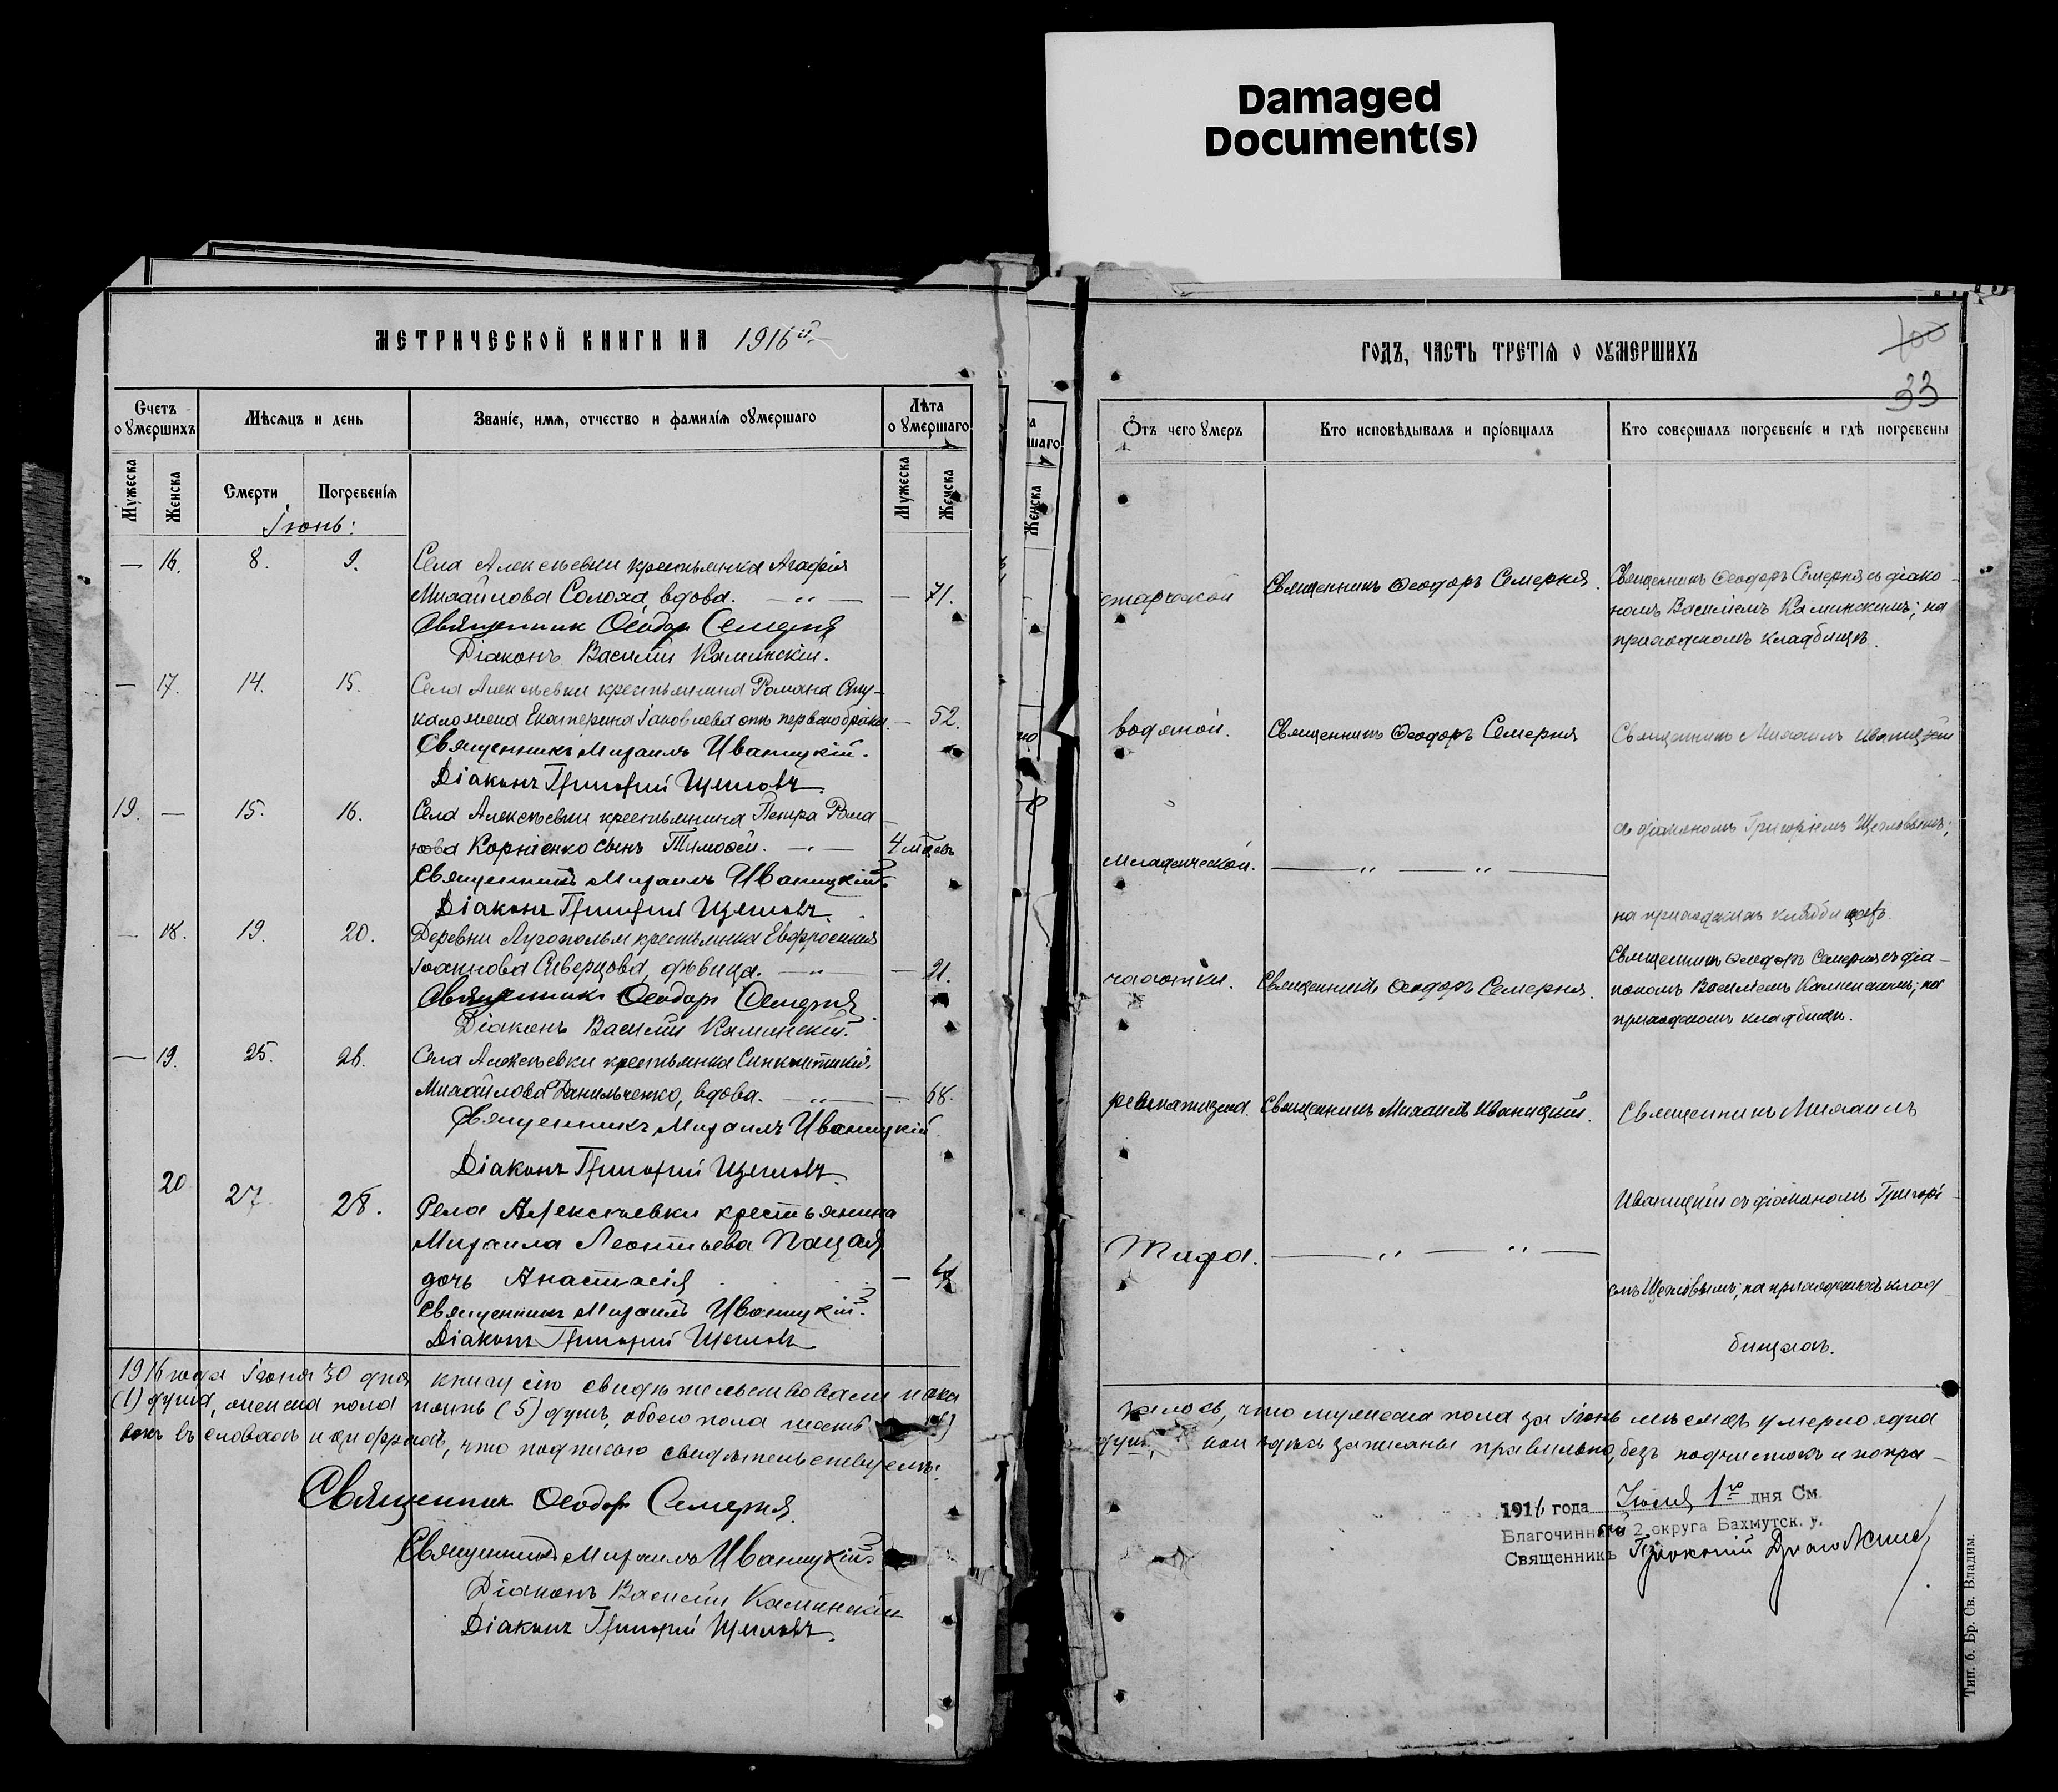 Damaged
Document(s)
МЕТРИЧЕСКОЙ КНИГИ НА 1916й
Счетъ оумершихъ
Мѣсяцъ и день
Званіе, имя, отчество и фамилія оумершаго
Лѣта оумершаго
Мужеска
Женска
Смерти
Погребенія
Мужеска
Женска
Іюнь:
— 16. 8. 9. Села Алексѣевки крестьянка Агафія
Михайлова Солоха, вдова. — „ — — 71.
Священник Ѳеодор Семерня
Діаконъ Василій Каминскій.
— 17. 14. 15. Села Алексѣевки крестьянина Романа
жена Екатерина Іаковлева отъ перваго брака. — 52.
Священникъ Михаилъ Иваницкій.
Діаконъ Григорій Щегловъ.
19. — 15. 16. Села Алексѣевки крестьянина Петра Рома
нова Корніенко сынъ Тимоѳей. — „ — 4 мѣсяц
Священникъ Михаилъ Иваницкій.
Діаконъ Григорій Щегловъ.
— 18. 19. 20. Деревни крестьянка Евфросинія
Іоаннова Сиверцова, дѣвица. — „ — — 21.
Священникъ Ѳеодоръ Семерня
Діаконъ Василій Каминскій.
— 19. 25. 26. Села Алексѣевки крестьянка Синклитикія
Михайлова Данильченко, вдова. — „ — — 68.
Священникъ Михаилъ Иваницкій
Діаконъ Григорій Щегловъ.
20 27 28. Села Алексѣевки крестьянина
Михаила Леонтьева Пацая
дочь Анастасія —
Священникъ Михаилъ Иваницкій.
Діаконъ Григорій Щегловъ
1916 года Іюня 30 дня книгу сію свидѣтельствовали и ока
(1) душа, женска пола пять (5) душъ, обоего пола шесть
вокъ въ словахъ и цифрахъ, что подписью свидѣтельствуемъ:
Священник Ѳеодор Семерня.
Священникъ Михаилъ Иваницкій
Діаконъ Василій Каминскій
Діаконъ Григорій Щегловъ.
а
шаго
Женска
ГОДЪ, ЧАСТЬ ТРЕТІЯ О ОУМЕРШИХЪ
100
33
Отъ чего умеръ
Кто исповѣдывалъ и пріобщалъ
Кто совершалъ погребеніе и гдѣ погребены
старческой
Священникъ Ѳеодоръ Семерня.
Священникъ Ѳеодоръ Семерня съ діако
номъ Василіемъ Каминскимъ; на
приходскомъ кладбищѣ.
водяной.
Священникъ Ѳеодоръ Семерня
Священникъ Михаилъ Иваницкій
съ діакономъ Григоріемъ Щегловымъ;
младенческой. — „ — „ —
на приходскихъ кладбищахъ.
чахотки.
Священникъ Ѳеодоръ Семерня.
Священникъ Ѳеодоръ Семерня съ діа—
кономъ Василіемъ Каминскимъ; на
приходскомъ кладбищѣ.
ревматизма.
Священникъ Михаилъ Иваницкій.
Священникъ Михаилъ
Иваницкій съ діакономъ Григорі
Тифа. — „ — „ —
емъ Щегловымъ; на приходскихъ клад
бищахъ.
залось, что мужеска пола за Іюнь мѣсяцъ умерло одна
душ, кои здѣсь записаны правильно, безъ подчистокъ и попра—
1916 года Іюля 1го дня См.
Благочинный 2 округа Бахмутск. у.
Священникъ
Тип. б. Бр. Св. Владим.